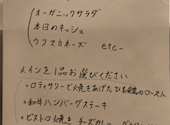 オーガニックサラダ
本日のキッシュ
ウフマヨネーズ etc-
メインを1品お選びください
・ロティサリーで焼きあげたひな鶏のロースト
・和牛ハンバーグステーキ
・ビストロ焼き チーズカレー